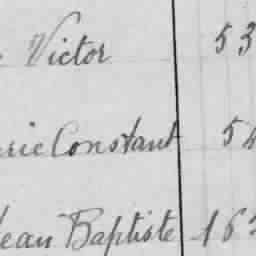 Victor 53
Constant 54
Jean Baptiste 16